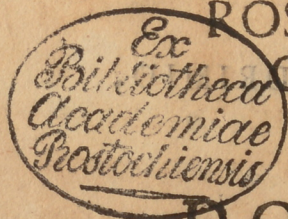 ROS
Ex
Bibliotheca
Academiae
Rostochiensis
DO